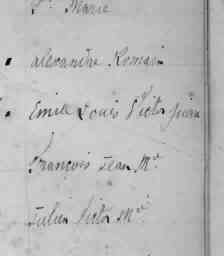 Marie
alexandre Romain
Emile Louis Victor Jean
François Jean Mie
Julien Victor Mie